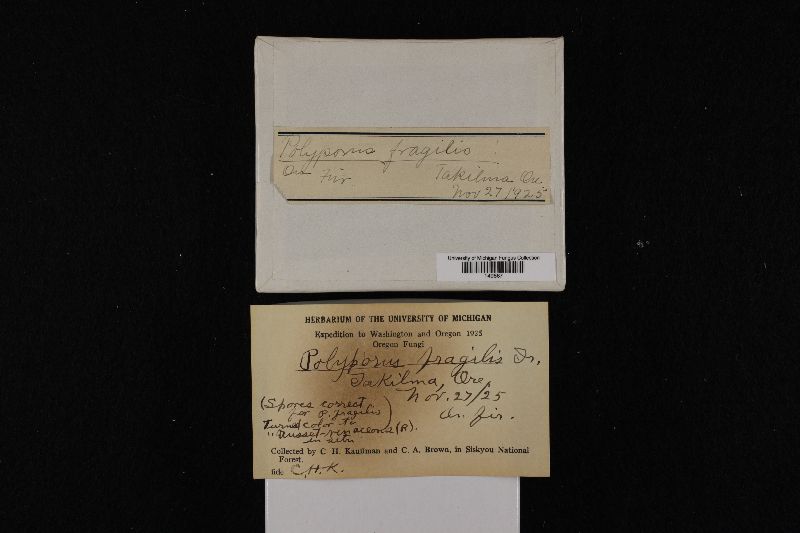 Polyporus fragilis
On Fir Takilma Ore.
Nov 27 1925
University of Michigan Fungus Collection
HERBARIUM OF THE UNIVERSITY OF MICHIGAN
Expedition to Washington and Oregon 1925
Oregon Fungi
Polyporus fragilis Fr.
Takilma, Ore,
Nov. 27/25
On fir.
(Spores correct
for P. fragilis)
Turns color to
"Russet-vinaceous (R).
Collected by C. H. Kauffman and C. A. Brown, in Siskyou National
Forest.
fide C.H.K.